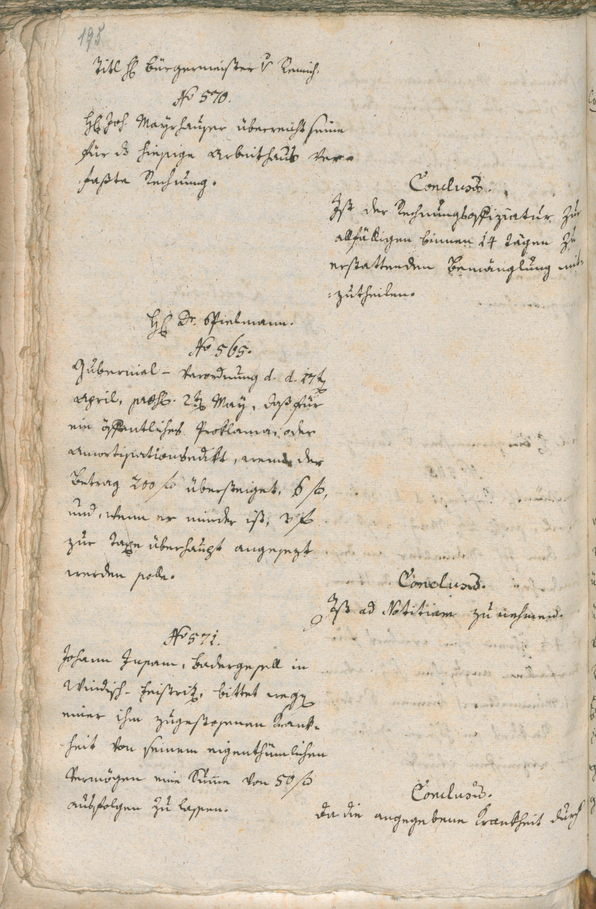 195
Titl H: Bürgermeister v Remich.
No 570.
H: Joh. Mayrhauser überreicht seine
für ds hiesige Arbeithaus ver=
faßte Rechnung.
Conclusũ.
Ist der Rechnungsoffiziatur zur
allfälligen binnen 14 Tägen zu
erstattenden Bemänglung mit=
zutheilen.
H: Dr. Spielmann.
No 565.
Gubernial=Verordnung d. d. 17t
April, präs. 2t May, daß für
ein öffentliches Proklama, oder
Amortisationsedikt, wenn der
Betrag 200 f übersteiget, 6 f,
und, wenn er minder ist, 3 f
zur Taxe überhaupt angesezt
werden solle.
Conclusũ.
Ist ad Notitiam zu nehmen.
No 571.
Johann, Badergesell in
Windisch=Feistritz, bittet wegen
einer ihm zugestossenen Krank=
heit von seinem eigenthümlichen
Vermögen eine Sum̃e von 50 f
ausfolgen zu lassen.
Conclusũ.
Da die angegebene Krankheit durch